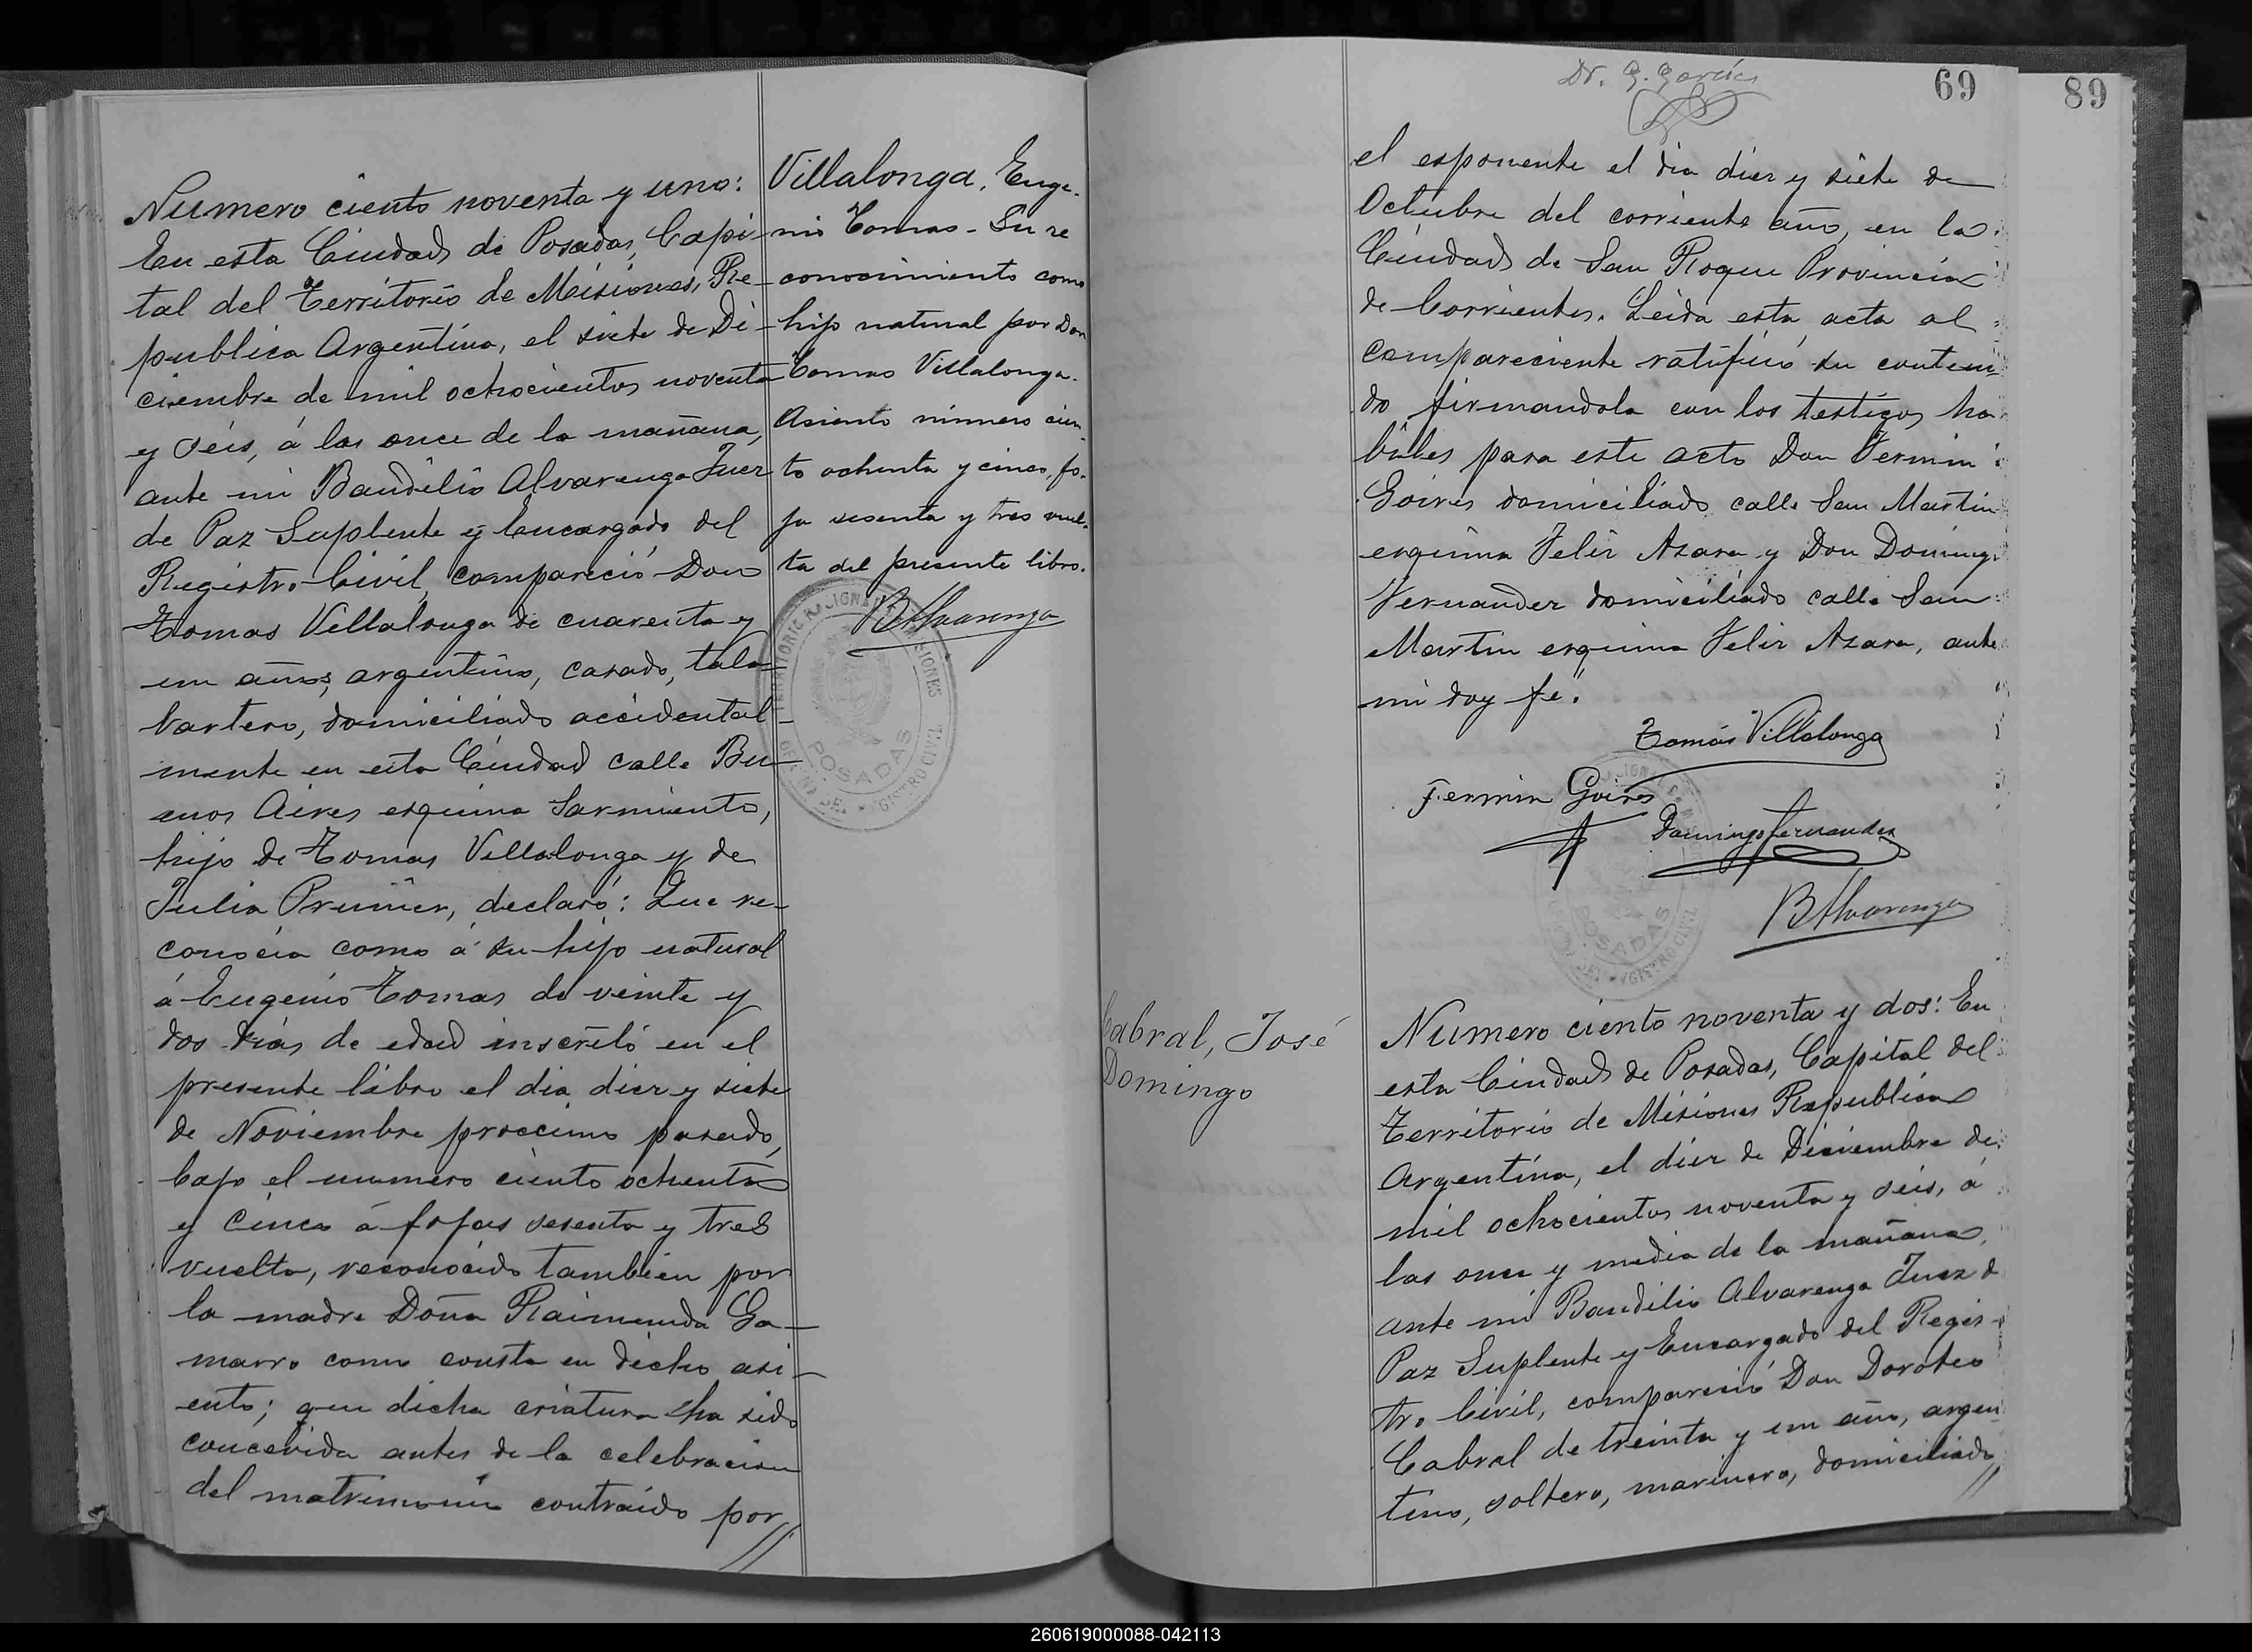 Numero ciento noventa y uno:
En esta Ciudad de Posadas, Capi-
tal del Territorio de Misiones, Re-
publica Argentina, el siete de Di-
ciembre de mil ochocientos noventa
y seis, á las once de la mañana,
ante mi Baudilio Alvarenga Juez
de Paz Suplente y Encargado del
Registro Civil, compareció Don
Tomas Villalonga de cuarenta y
un años, argentino, casado, tala-
bartero, domiciliado accidental-
mente en esta Ciudad calle Bu-
enos Aires esquina Sarmiento,
hijo de Tomas Villalonga y de
Julia declaró: Que re-
conocia como á su hijo natural
á Eugenio Tomas de veinte y
dos dias de edad inscrito en el
presente libro el dia diez y siete
de Noviembre proccimo pasado,
bajo el numero ciento ochenta
y cinco á fojas sesenta y tres
vuelta, reconocido tambien por
la madre Doña Raimunda Ga-
marro como consta en dicho asi-
ento; que dicha criatura ha sido
concevida antes de la celebracion
del matrimonio contraido por//
Villalonga, Euge-
nio Tomas - Su re
conocimiento como
hijo natural por Don
Tomas Villalonga.
Asiento número cien-
to ochenta y cinco, fo-
ja sesenta y tres vuel-
ta del presente libro.
BAlvarenga
POSADAS
Dr. G. García
69
89
el esponente el dia diez y siete de
Octubre del corriente año, en la
Ciudad de San Roque Provincia
de Corrientes. Leida esta acta al
compareciente ratificó su conteni
do firmandola con los testigos ha
biles para este acto Don Fermin
Goires domiciliado calle San Martin
esquina Felix Azara y Don Domingo
Fernandez domiciliado calle San
Martin esquina Felix Azara, ante
mi doy fé.
Tomás Villalonga
Fermin Goires
Domingo Fernandez
BAlvarenga
POSADAS
Cabral, José
Domingo
Numero ciento noventa y dos: En
esta Ciudad de Posadas, Capital del
Territorio de Misiones Republica
Argentina, el diez de Diciembre de
mil ochocientos noventa y seis, á
las once y media de la mañana,
ante mi Baudilio Alvarenga Juez d
Paz Suplente y Encargado del Regis-
tro Civil, compareció Don Doroteo
Cabral de treinta y un año, argen
tino, soltero, marinero, domiciliado//
260619000088-042113